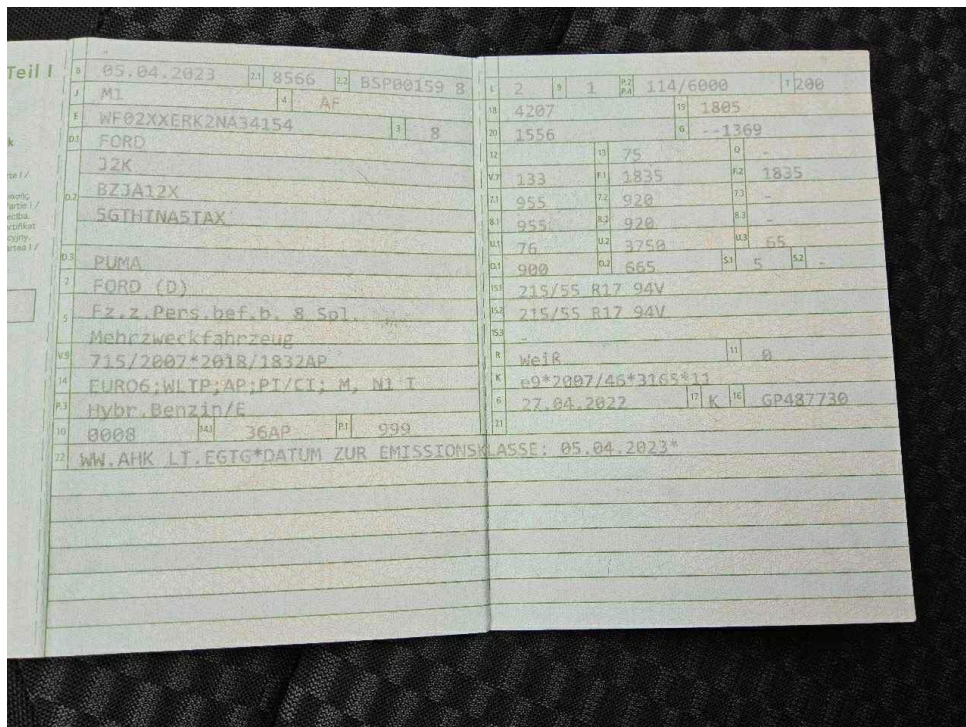 Teil I
B 05.04.2023 2.1 8566 2.2 BSP00159 8
J M1 4 AF
E WF02XXERK2NA34154 3 8
D.1 FORD
J2K
D.2 BZJA12X
5GTHINA5TAX
D.3 PUMA
2 FORD (D)
5 Fz.z.Pers.bef.b. 8 Spl.
Mehrzweckfahrzeug
V.9 715/2007*2018/1832AP
14 EURO6;WLTP;AP;PI/CI; M, N1 I
P.3 Hybr.Benzin/E
10 0008 14.1 36AP P.1 999
22 WW.AHK LT.EGTG*DATUM ZUR EMISSIONSKLASSE: 05.04.2023*
L 2 9 1 P.2 P.4 114/6000 T 200
18 4207 19 1805
20 1556 G --1369
12 - 13 75 Q -
V.7 133 F.1 1835 F.2 1835
7.1 955 7.2 920 7.3 -
8.1 955 8.2 920 8.3 -
U.1 76 U.2 3750 U.3 65
O.1 900 O.2 665 S.1 5 S.2 -
15.1 215/55 R17 94V
15.2 215/55 R17 94V
15.3 -
R Weiß 11 0
K e9*2007/46*3165*11
6 27.04.2022 17 K 16 GP487730
21